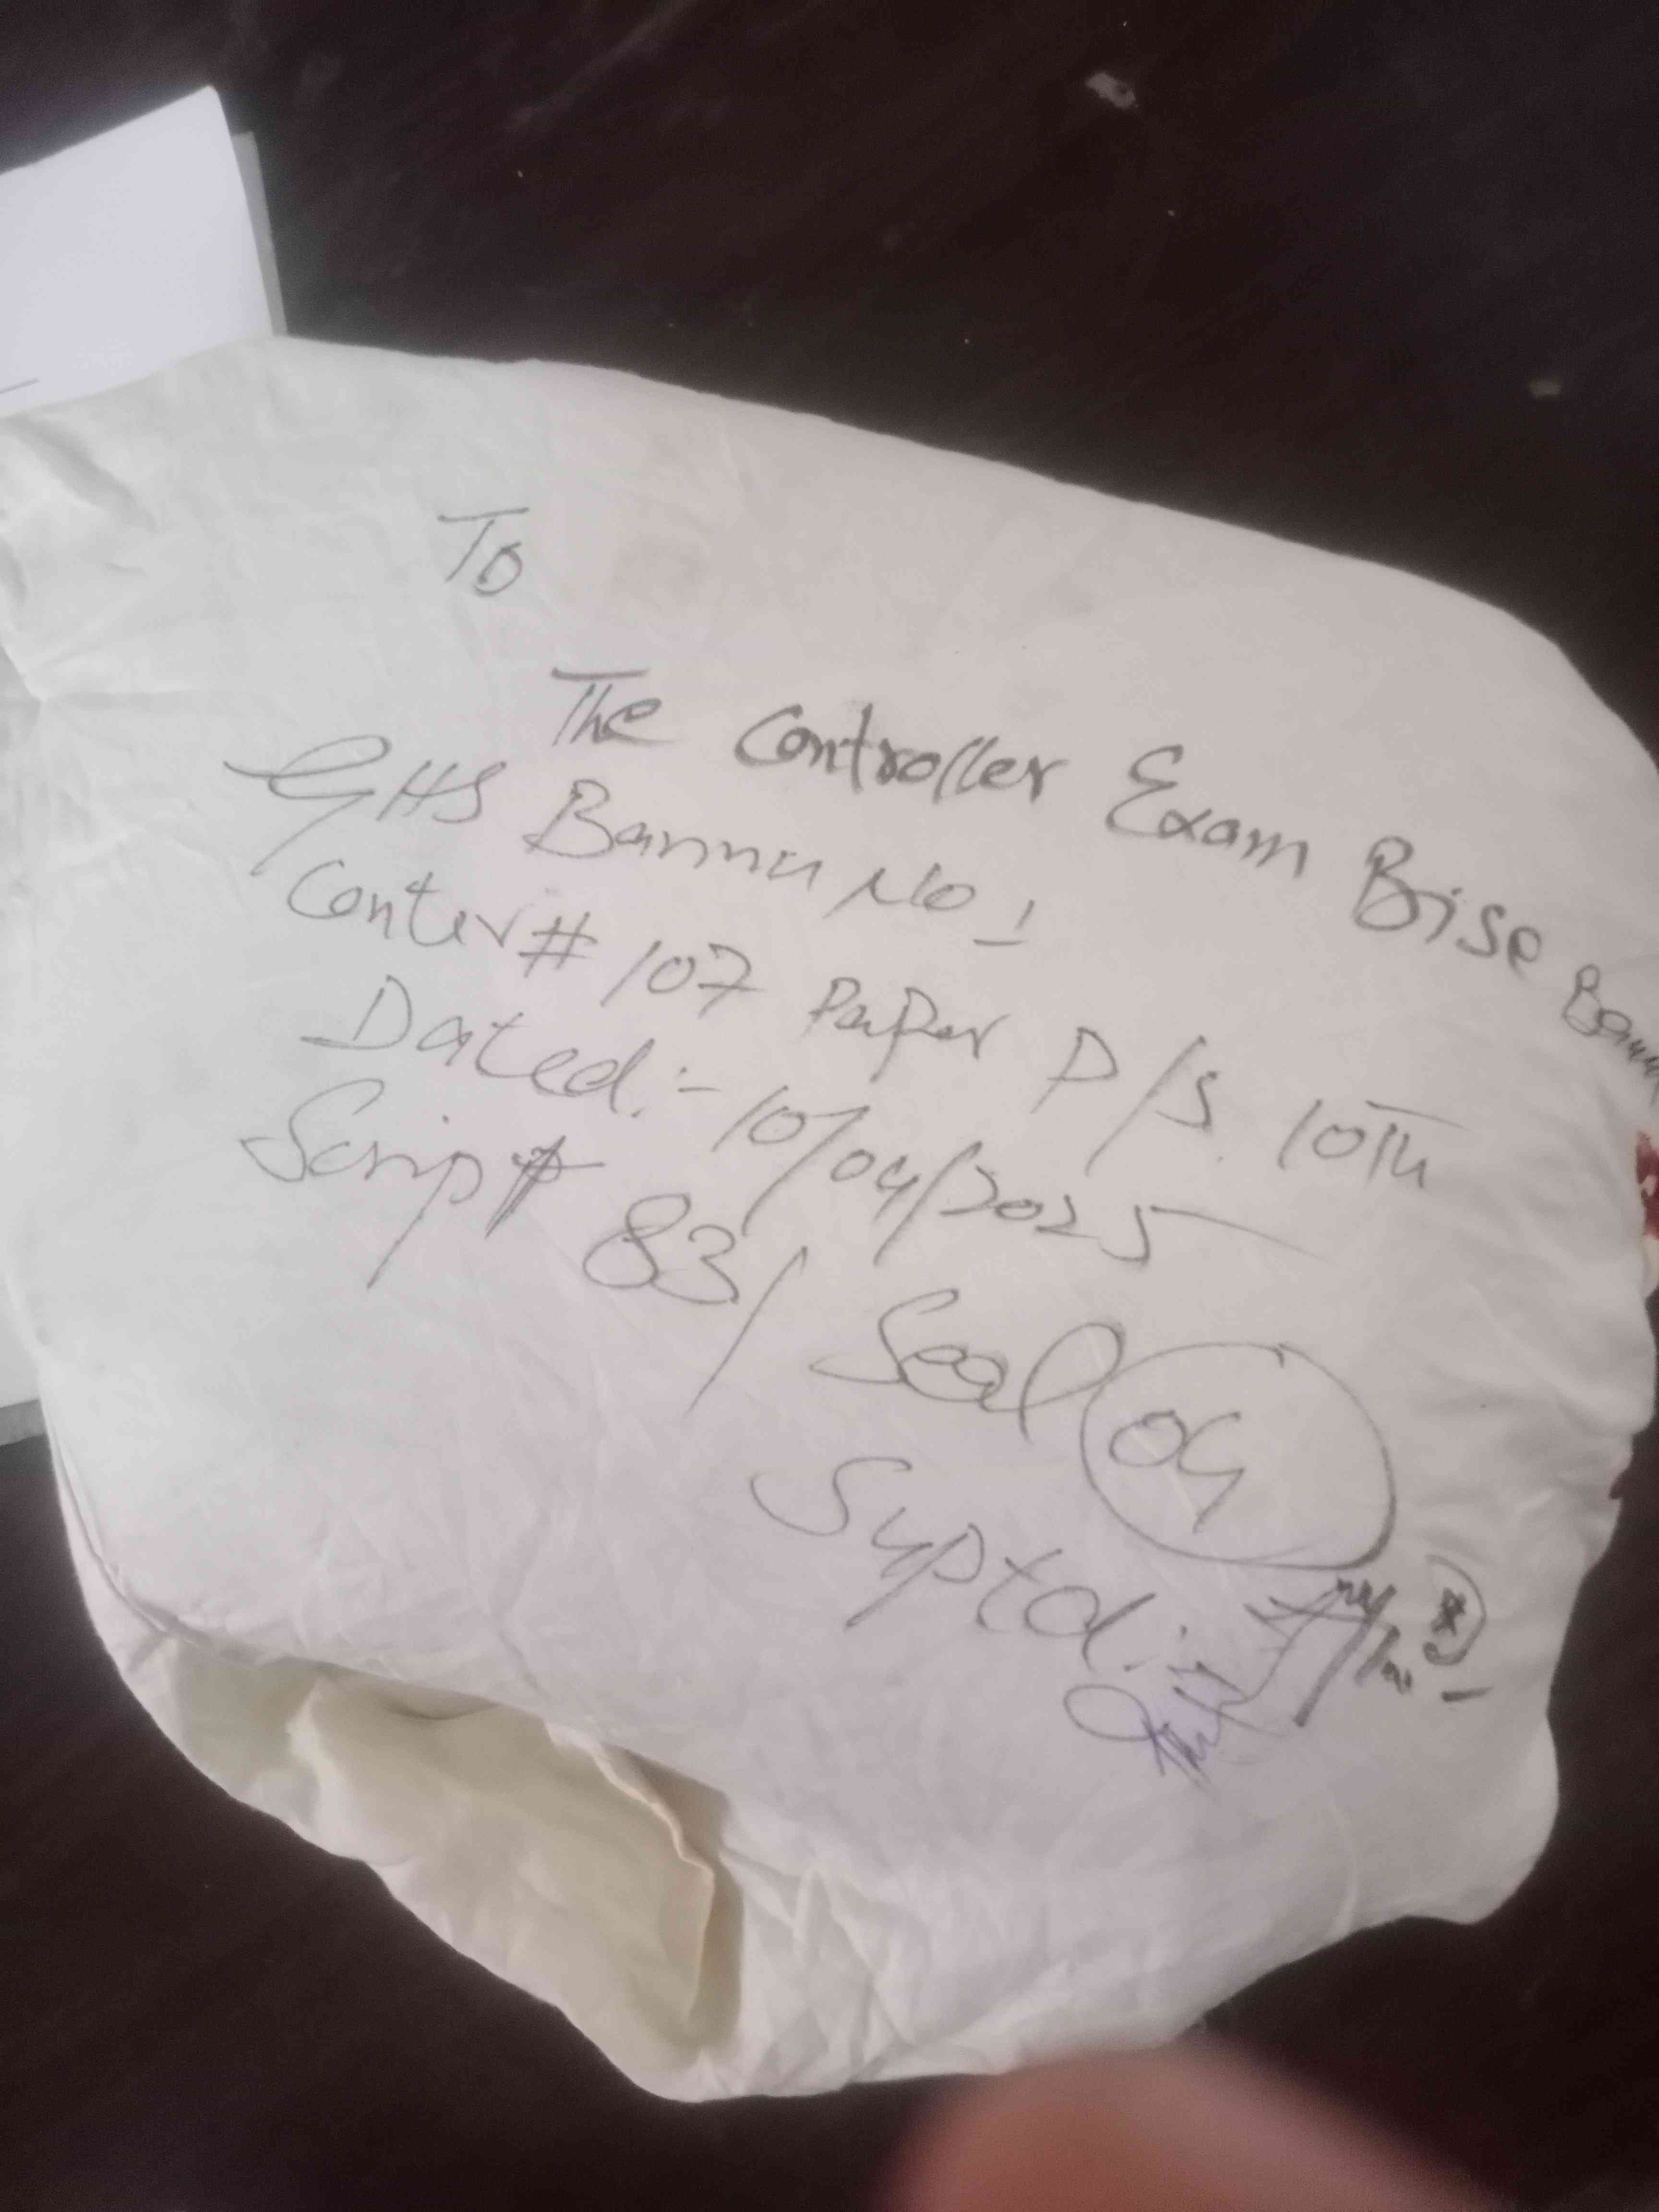 To
The Controller Exam Bise
GHS Bannu No 1
Center # 107 Paper P/S 10th
Dated:- 10/04/2025
Script 83/ Seal 04
Suptd:-